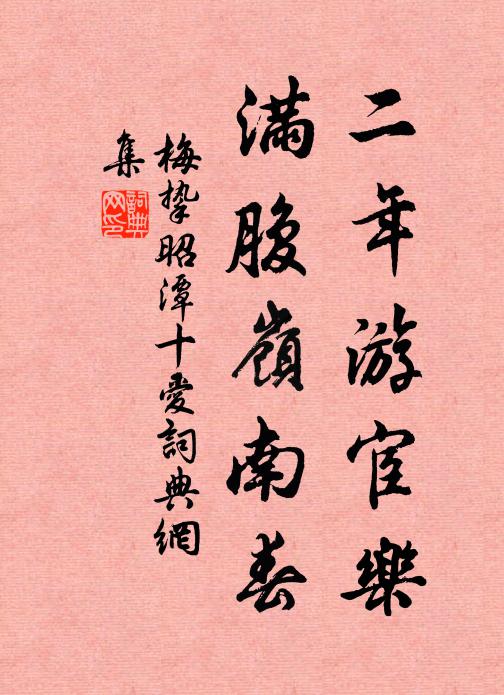 二年游宦樂
滿腹嶺南春
梅摯昭潭十愛詞典網
集
詞典
网印